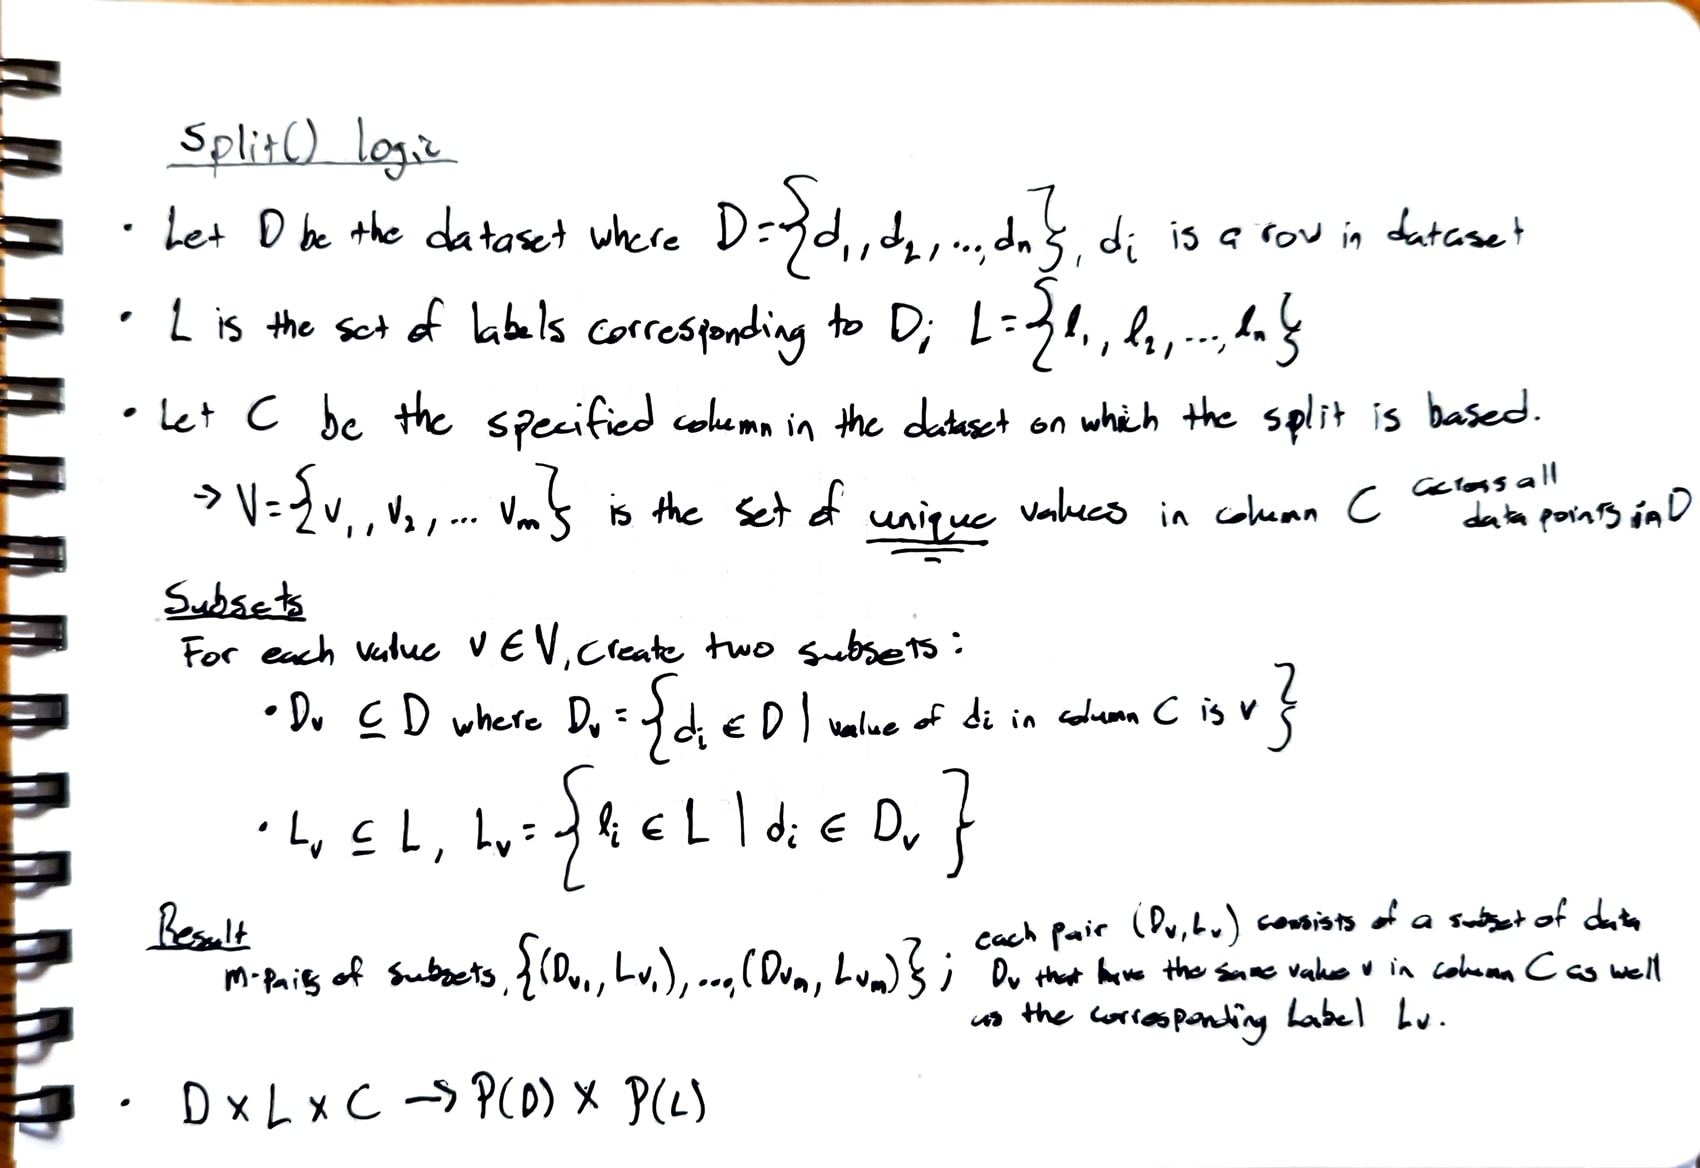 Split() logic
• Let D be the dataset where D={d₁, d₂, ..., dₙ}, dᵢ is a row in dataset
• L is the set of labels corresponding to D; L={l₁, l₂, ..., lₙ}
• Let C be the specified column in the dataset on which the split is based.
→ V={v₁, v₂, ... vₘ} is the set of unique values in column C across all data points in D
Subsets
For each value v ∈ V, create two subsets:
• Dᵥ ⊆ D where Dᵥ = {dᵢ ∈ D | value of di in column C is v}
• Lᵥ ⊆ L, Lᵥ = {lᵢ ∈ L | dᵢ ∈ Dᵥ}
Result
m-pairs of subsets, {(Dᵥ₁, Lᵥ₁), ..., (Dᵥₘ, Lᵥₘ)}; each pair (Dᵥ, Lᵥ) consists of a subset of data
Dᵥ that have the same value v in column C as well
as the corresponding Label Lᵥ.
• D × L × C → P(D) × P(L)